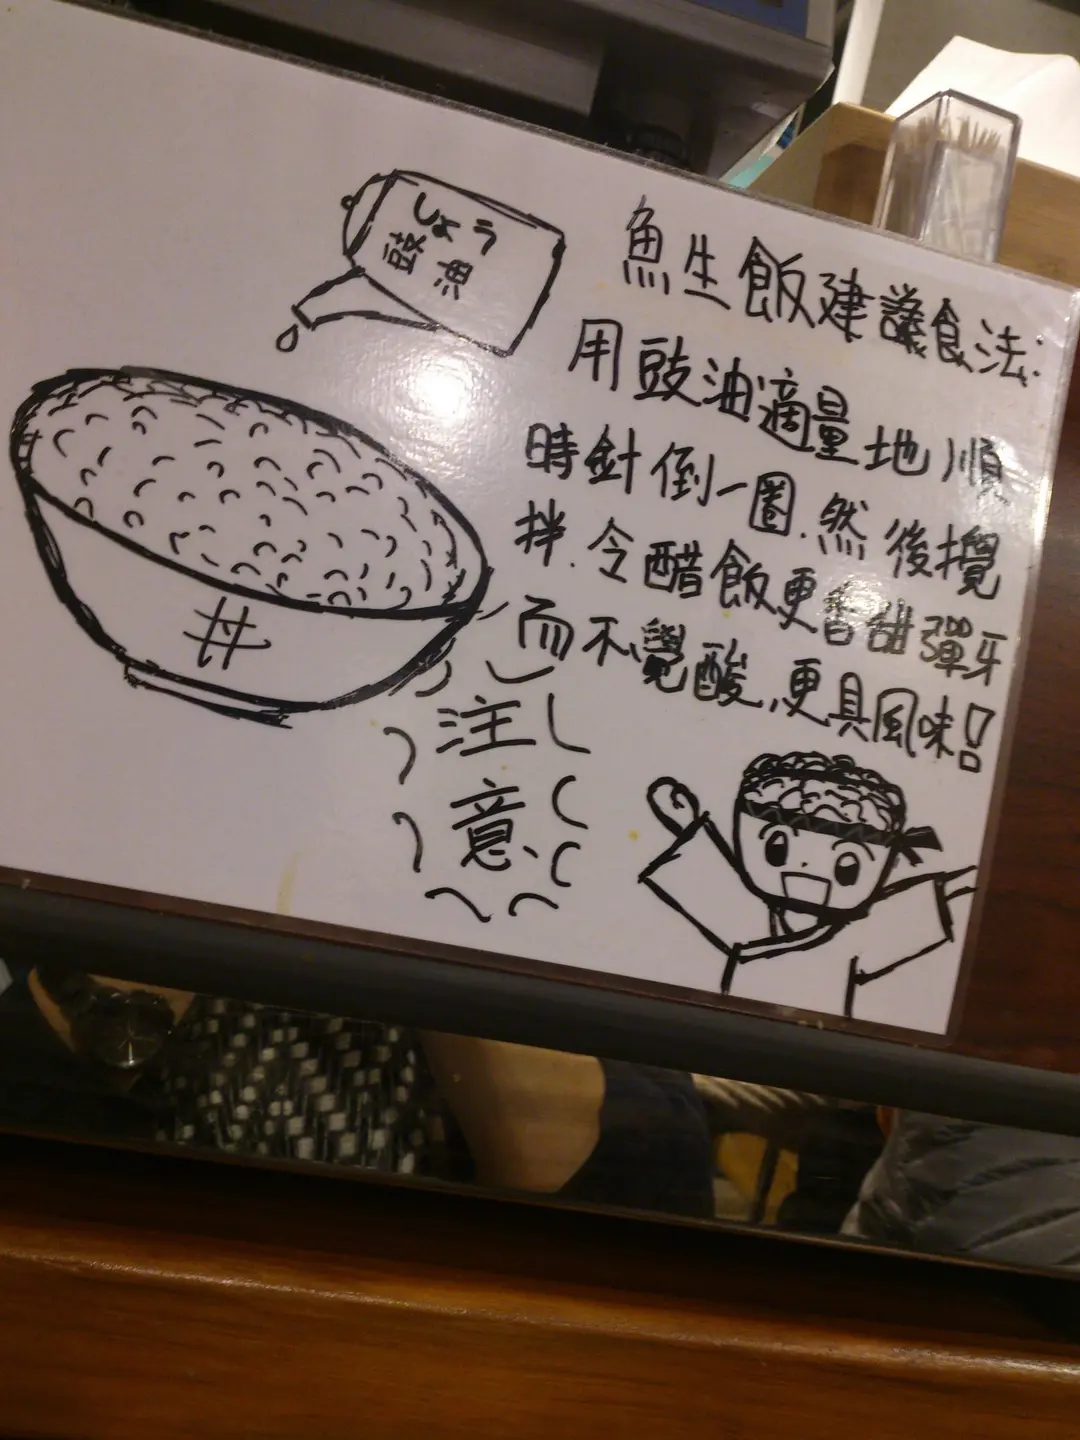 しょう
豉油
魚生飯建議食法:
用豉油適量地順
時針倒一圈.然後攪
拌.令醋飯更香甜彈牙
而不覺酸,更具風味!
丼
注
意